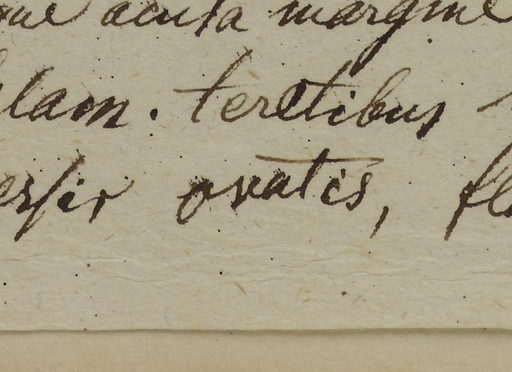 acuta margine
lam. teretibus
ovatis, fl